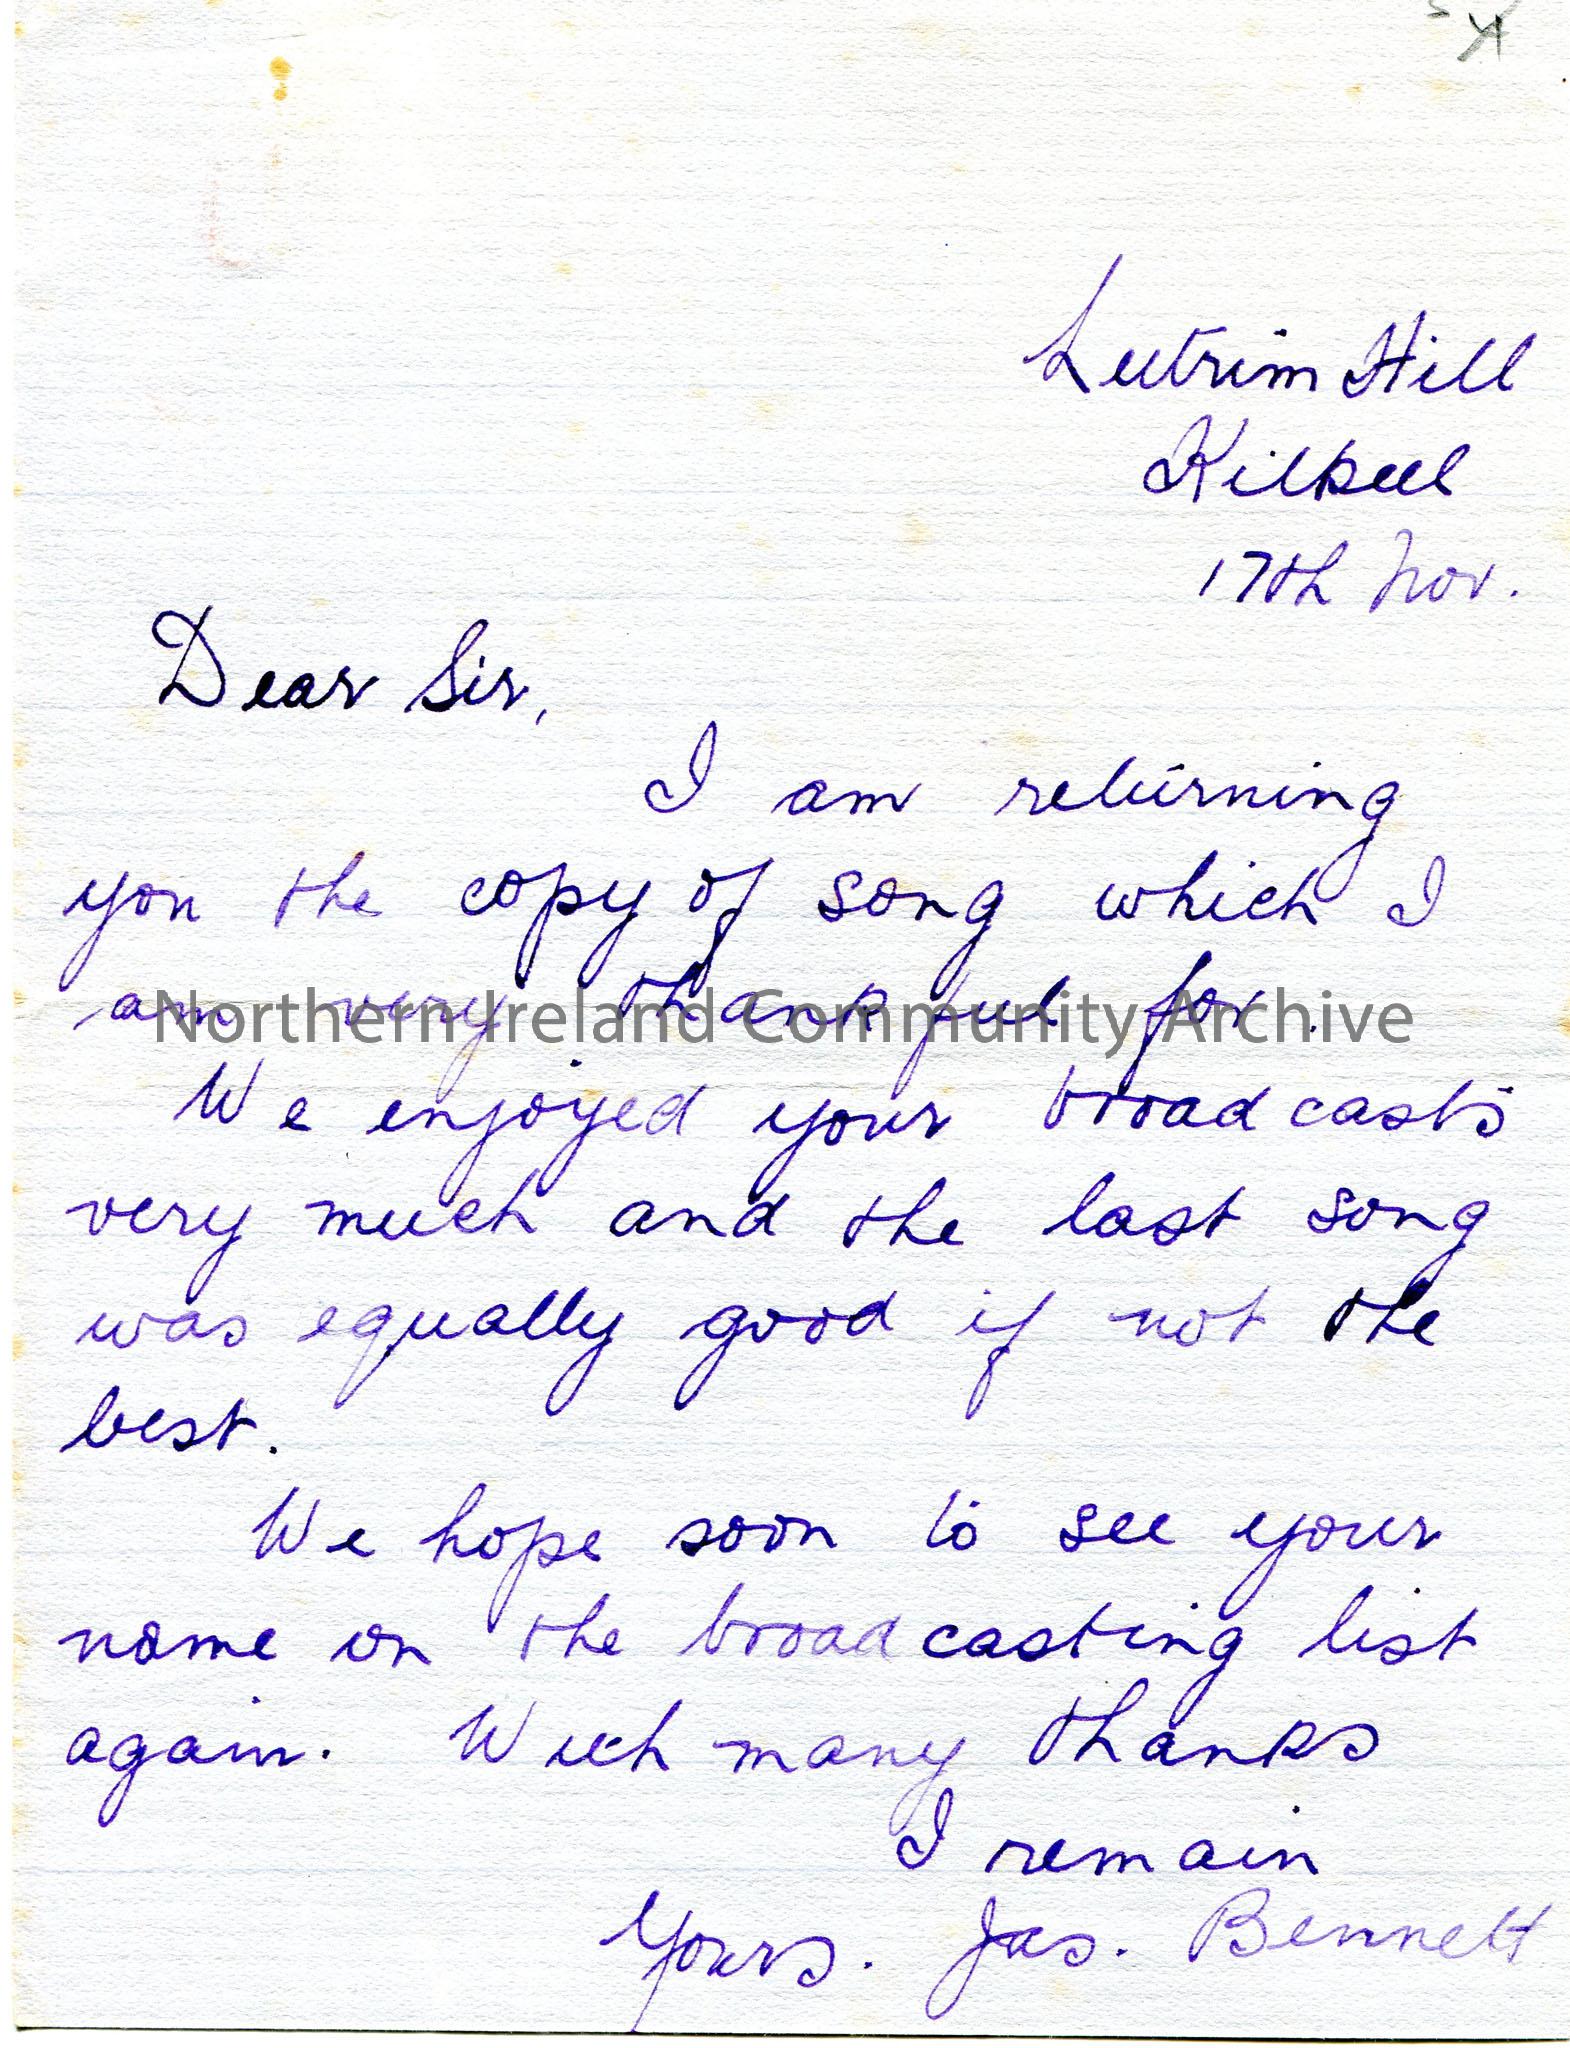 Leitrim Hill
Kilkeel
17th Nov.
Dear Sir,
I am returning
you the copy of song which I
am very thankful for.
Northern Ireland Community Archive
We enjoyed your broadcasts
very much and the last song
was equally good if not the
best.
We hope soon to see your
name on the broadcasting list
again. With many thanks
I remain
Yours. Jas. Bennett